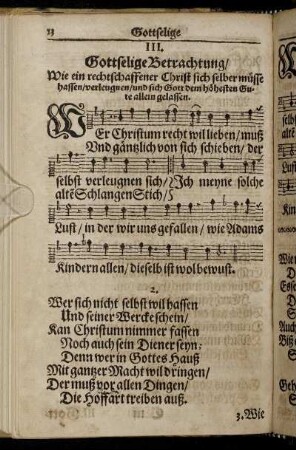 13 Gottselige
III.
Gottselige Betrachtung/
Wie ein rechtschaffener Christ sich selber müsse
hassen/ verleugnen/ und sich Gott dem höhesten Gu-
te allein gelassen.
WEr Christum recht wil lieben/ muß
Vnd gäntzlich von sich schieben/ der
selbst verleugnen sich/ Ich meyne solche
altē Schlangen Stich/
Lust/ in der wir uns gefallen/ wie Adams
Kindern allen/ dieselb ist wol bewust.
2.
Wer sich nicht selbst wil hassen
Und seiner Wercke schein/
Kan Christum nimmer fassen
Noch auch sein Diener seyn:
Denn wer in Gottes Hauß
Mit gantzer Macht wil dringen/
Der muß vor allen Dingen/
Die Hoffart treiben auß.
3. Wie